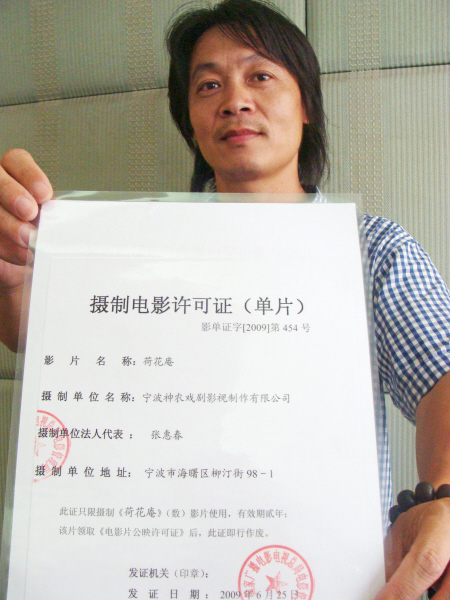 摄制电影许可证（单片）
影单证字[2009]第 454 号
影 片 名 称：荷花庵
摄 制 单 位 名 称：宁波神农戏剧影视制作有限公司
摄制单位法人代表 ： 张惠春
摄 制 单 位 地 址： 宁波市海曙区柳汀街 98－1
此证只限摄制《荷花庵》（数）影片使用，有效期贰年；
该片领取《电影片公映许可证》后，此证即行作废。
发证机关（印章）：
发 证 日 期 ： 2009 年 6 月 25 日